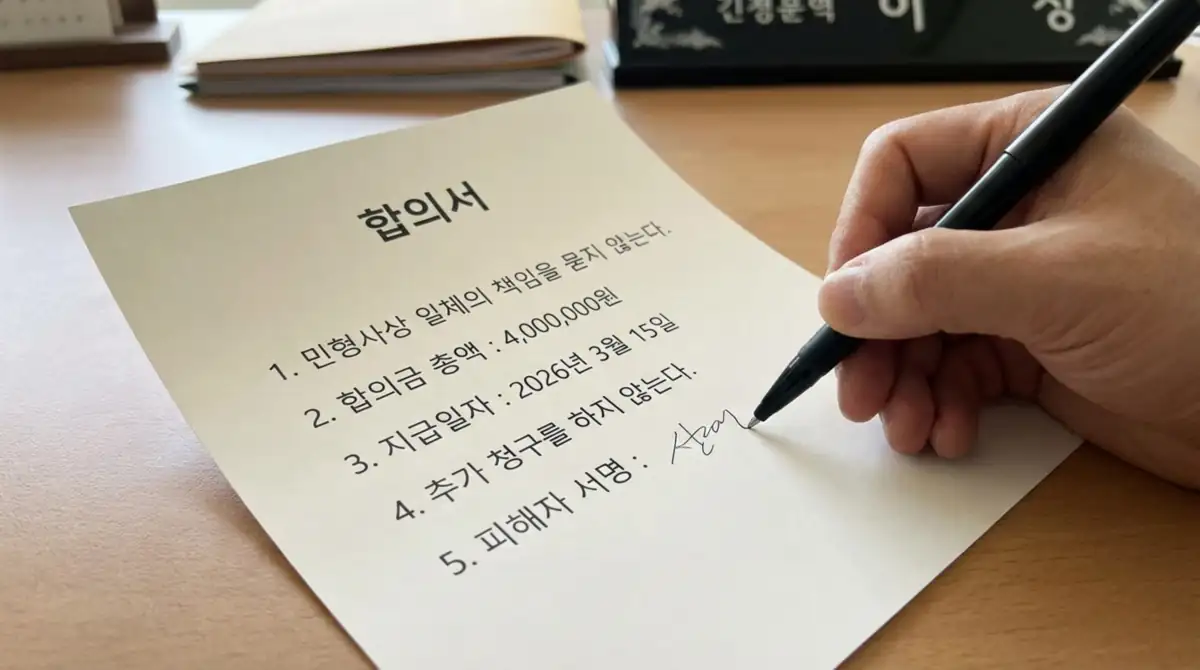 이 정
합의서
1. 민형사상 일체의 책임을 묻지 않는다.
2. 합의금 총액 : 4,000,000원
3. 지급일자 : 2026년 3월 15일
4. 추가 청구를 하지 않는다.
5. 피해자 서명 :